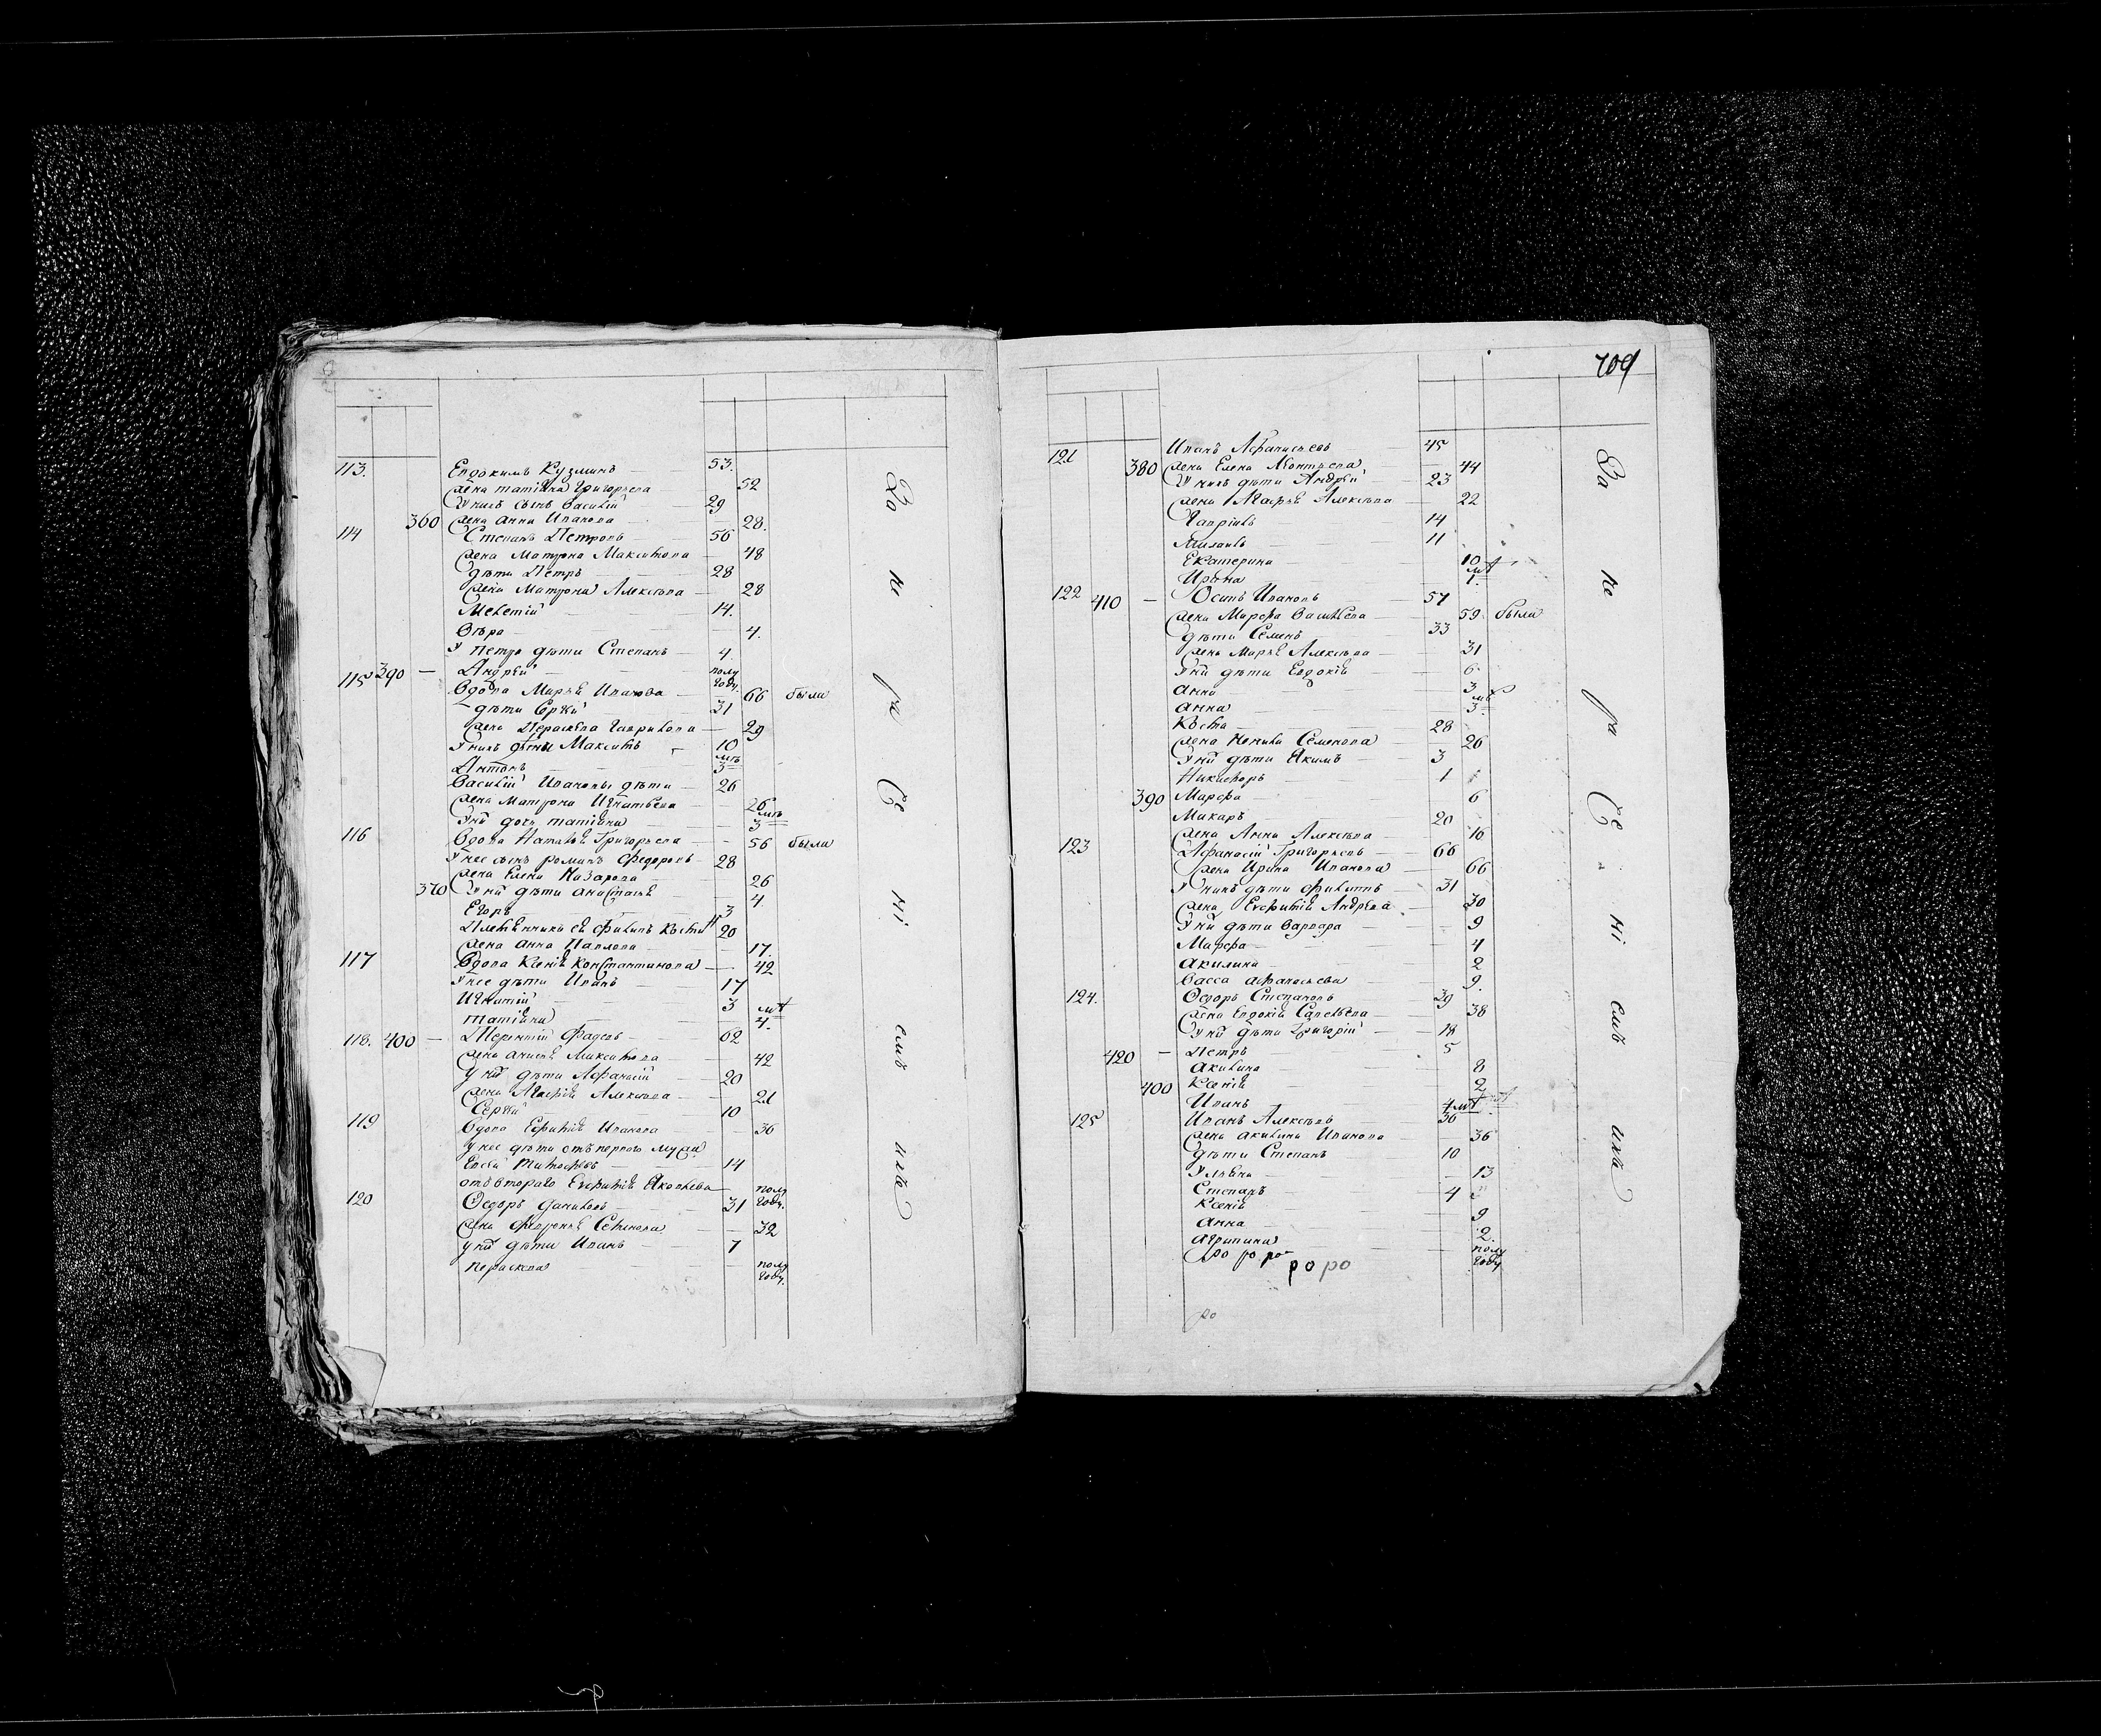 113. Евдокимъ Кузминъ 53.
жена татіяна Григорьева 52
У нихъ сынъ Василій 29
360 жена анна Иванова 28.
114 Степанъ Петровъ 56
жена Матрона Максимова 48
дѣти Петръ 28
жена Матрона Алексѣева 28
Мелетій 14.
Вѣра 4.
У петра дѣти Степанъ 4.
390 Андрей полу году.
115 Вдова Марья Иванова 66 была
дѣти Сергѣй 31
жена Параскева Гаврилова 29
У нихъ дѣти Максимъ 10
Антонъ мць 3
Василій Ивановы дѣти 26
жена Матрона Игнатьева 26
У ней дочь татіяна мць 3
116 Вдова Наталья Григорьева 56 была
У нее сынъ романъ Федоровъ 28
жена Елена Назарова 26
370 У ней дѣти анастасья 4.
Егоръ 3
Племянникъ ея Филипъ 20
жена Анна Павлова 17.
117 Вдова Ксенія Константинова 42
У нее дѣти Иванъ 17
Игнатій 3
татіяна 4.
118. 400 Терентій Фадеевъ 62
жена анисья Максимова 42
у ней дѣти Афанасій 20
жена Агафія Алексѣева 21
Сергѣй 10
119 Вдова Ефимія Иванова 36
у нее дѣти отъ перваго мужа
тимофѣевъ 14
отъ втораго Евфимія Яковлева полу году.
120 Федоръ Даниловъ 31
жена Федосья Семенова 32
у ней дѣти Иванъ 7
параскева полу году.
709
121 Иванъ Афанасьевъ 45
380 жена Елена Леонтьева 44
У нихъ дѣти Андрей 23
жена Агафья Алексѣева 22
Гавріилъ 14
Михаилъ 11
Екатерина 10
Ирина 1.
122 410 Осипъ Ивановъ 57
жена Марфа Васильева 59 была
дѣти Семенъ 33
жена Марья Алексѣева 31
У ней дѣти Евдокія 6
анна 3
анна 3.
28
жена Семенова 26
У ней дѣти Якимъ 3
Никифоръ 1
390 Марфа 6
Макаръ 20
жена Анна Алексѣева 16
123 Афанасій Григорьевъ 66
жена Ирина Иванова 66
У нихъ дѣти Филиппъ 31
жена Евфимія Андрѣева 30
У ней дѣти Варвара 9
Марфа 4
акилина 2
Васса афанасьева 9.
124. Федоръ Степановъ 39
жена Евдокія Савельева 38
У ней дѣти Григорій 18
420 Петръ 5
акилина 8
400 Ксенія 2
Иванъ 4
125 Иванъ Алексѣевъ 36
жена акилина Иванова 36
дѣти Степанъ 10
Ульяна 13
Степанъ 4
Ксенія 9
анна 2.
агрипина полу году
ро ро ро
ро ро